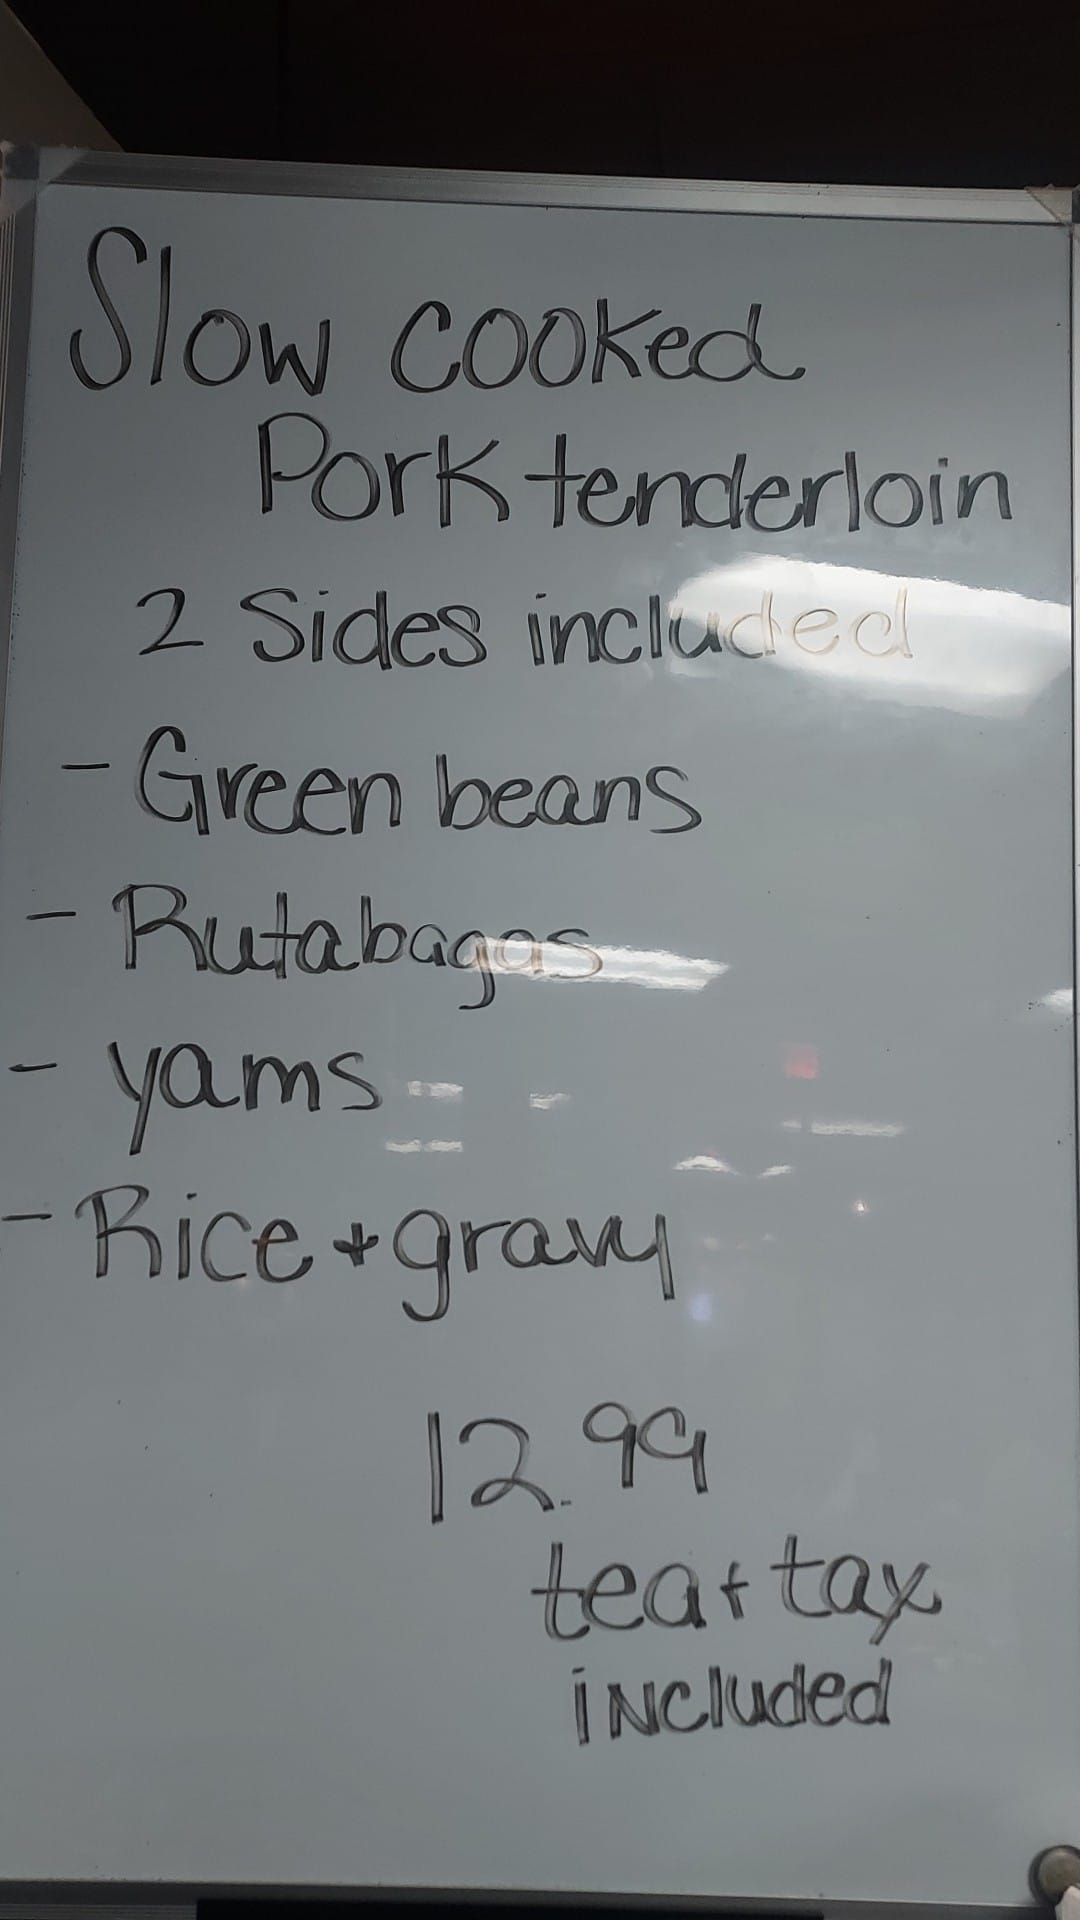 Slow cooked
Pork tenderloin
2 Sides included
- Green beans
- Rutabagas
- yams
- Rice + gravy
12.99
tea + tax
included